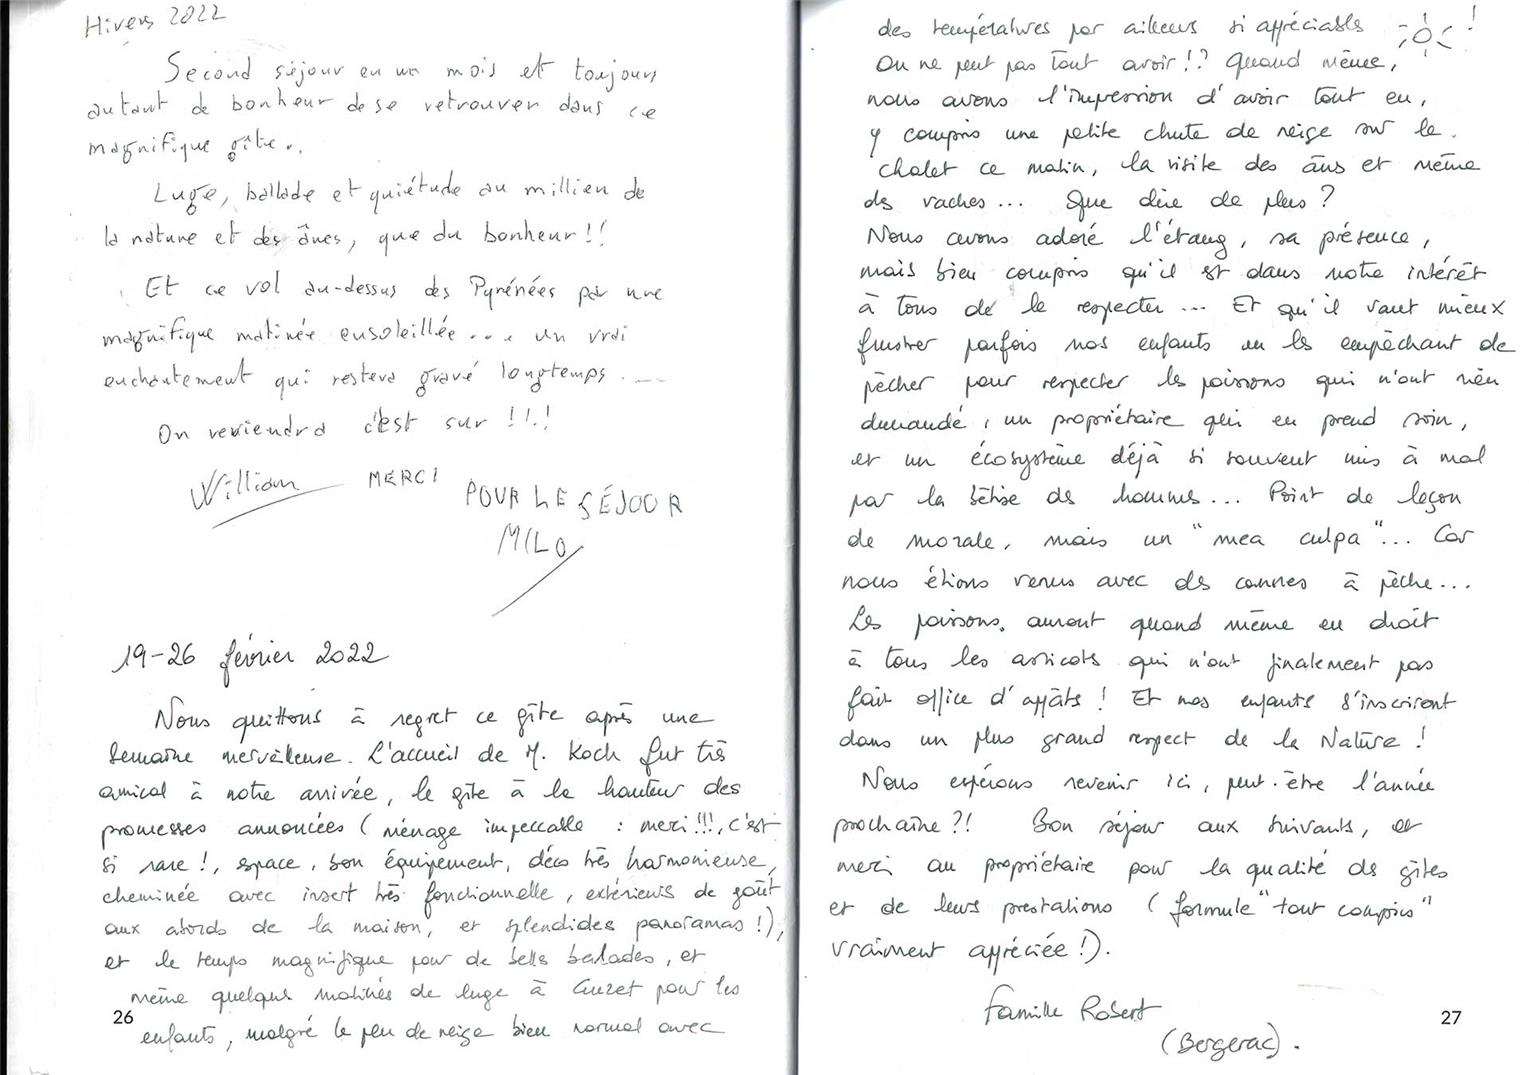 Hivers 2022
Second séjour en un mois et toujours
autant de bonheur de se retrouver dans ce
magnifique gîte..
Luge, ballade et quiétude au millien de
la nature et des ânes, que du bonheur!!
Et ce vol au-dessus des Pyrénées par une
magnifique matinée ensoleillée.... un vrai
enchantement qui restera gravé longtemps....
On reviendra c'est sur !!.!
William MERCI
POUR LE SÉJOUR
MILO
19-26 février 2022
Nous quittons à regret ce gîte après une
semaine merveilleuse. L'accueil de M. Koch fut très
amical à notre arrivée, le gîte à la hauteur des
promesses annoncées (ménage impeccable : merci!!!, c'est
si rare!, espace, bon équipement, déco très harmonieuse,
cheminée avec insert très fonctionnelle, extérieurs de goût
aux abords de la maison, et splendides panoramas!),
et le temps magnifique pour de belles balades, et
même quelques matinées de luge à Guzet pour les
enfants, malgré le peu de neige bien normal avec
26
des températures par ailleurs si appréciables !
On ne peut pas tout avoir!? Quand même,
nous avons l'impression d'avoir tout eu,
y compris une petite chute de neige sur le
chalet ce matin, la visite des ânes et même
des vaches... Que dire de plus?
Nous avons adoré l'étang, sa présence,
mais bien compris qu'il est dans notre intérêt
à tous de le respecter... Et qu'il vaut mieux
frustrer parfois nos enfants en les empêchant de
pêcher pour respecter les poissons qui n'ont rien
demandé, un propriétaire qui en prend soin,
et un écosystème déjà si souvent mis à mal
par la bêtise des hommes... Point de leçon
de morale, mais un "mea culpa"... Car
nous étions venus avec des cannes à pêche...
Les poissons auront quand même eu droit
à tous les asticots qui n'ont finalement pas
fait office d'appâts! Et nos enfants s'inscriront
dans un plus grand respect de la Nature!
Nous espérons revenir ici, peut-être l'année
prochaine?! Bon séjour aux suivants, et
merci au propriétaire pour la qualité des gîtes
et de leurs prestations (formule "tout compris"
vraiment appréciée!).
Famille Robert
(Bergerac).
27